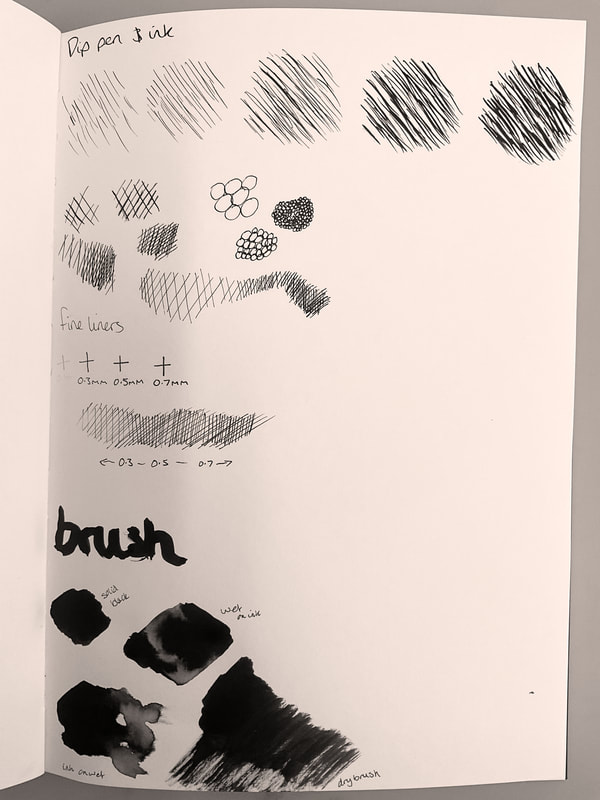 Dip pen $ ink
fine liners
0.3mm 0.5mm 0.7mm
← 0.3 - 0.5 - 0.7 →
brush
solid
black
wet
on ink
ink on wet
dry brush